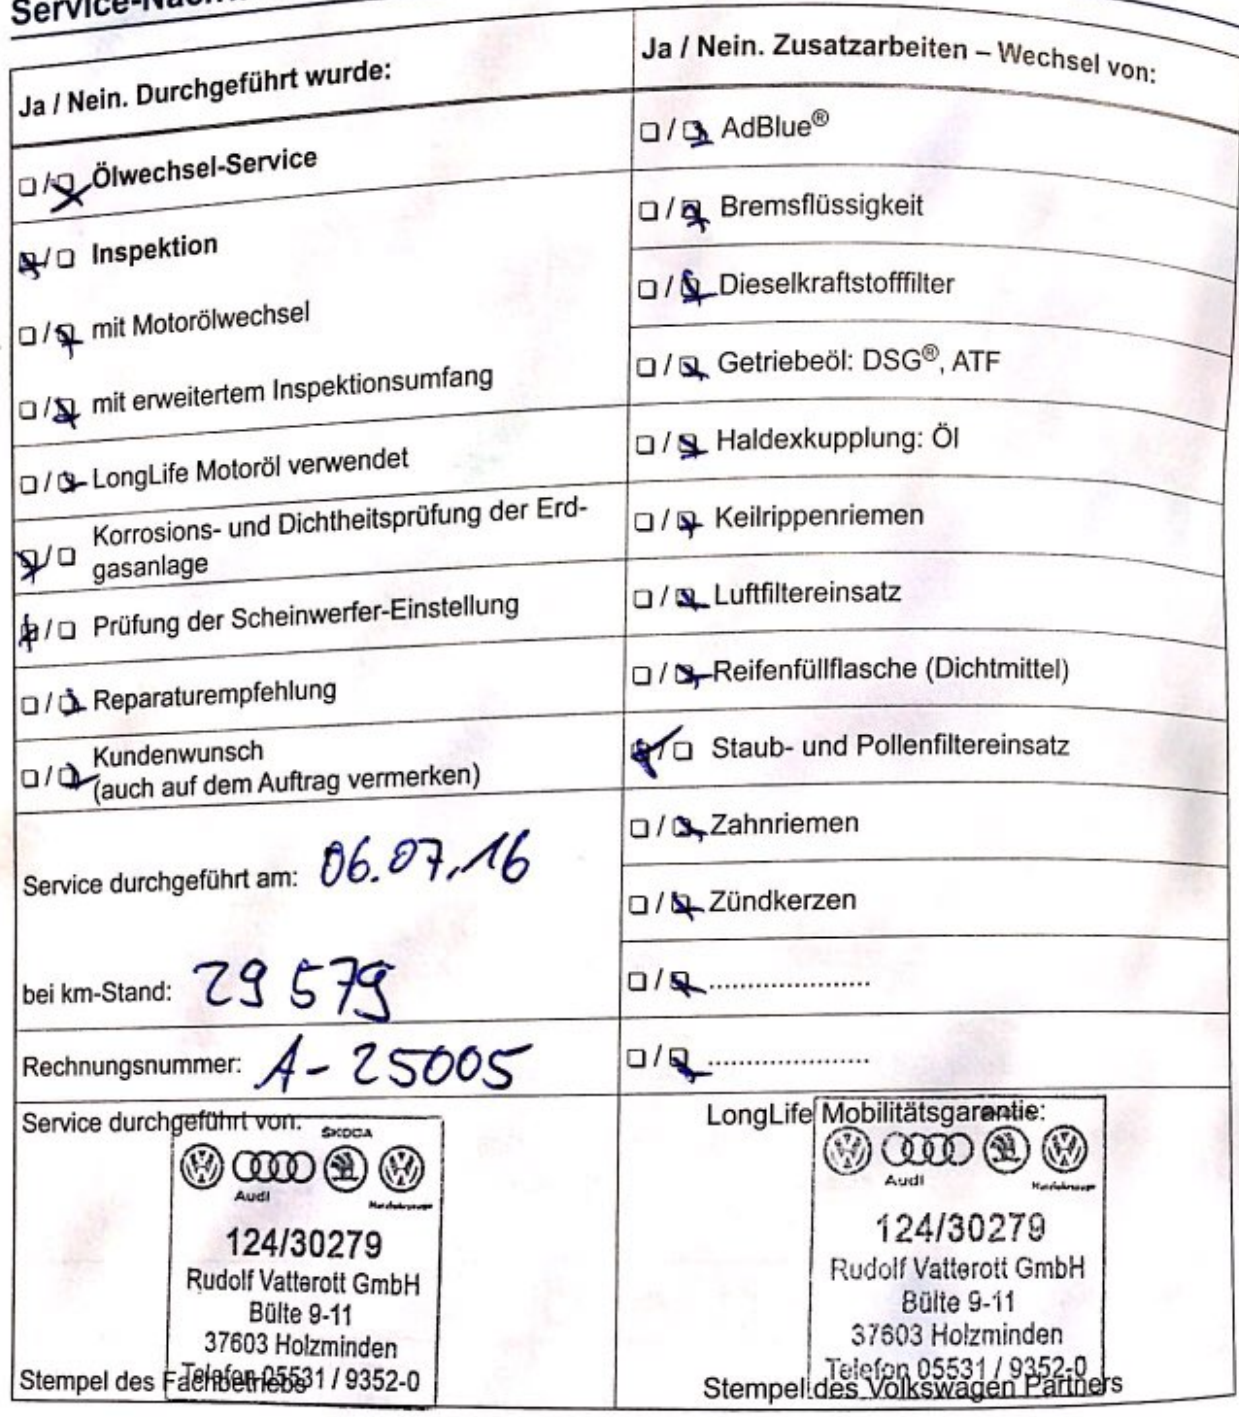 Ja / Nein. Durchgeführt wurde:
☐ / ☒ Ölwechsel-Service
☒ / ☐ Inspektion
☐ / ☒ mit Motorölwechsel
☐ / ☒ mit erweitertem Inspektionsumfang
☐ / ☒ LongLife Motoröl verwendet
☒ / ☐ Korrosions- und Dichtheitsprüfung der Erd-
gasanlage
☒ / ☐ Prüfung der Scheinwerfer-Einstellung
☐ / ☒ Reparaturempfehlung
☐ / ☒ Kundenwunsch
(auch auf dem Auftrag vermerken)
Service durchgeführt am: 06.07.16
bei km-Stand: 29 579
Rechnungsnummer: A-25005
Service durchgeführt von:
ŠKODA
Audi
124/30279
Rudolf Vatterott GmbH
Bülte 9-11
37603 Holzminden
Telefon 05531 / 9352-0
Stempel des Fachbetriebs
Ja / Nein. Zusatzarbeiten – Wechsel von:
☐ / ☒ AdBlue®
☐ / ☒ Bremsflüssigkeit
☐ / ☒ Dieselkraftstofffilter
☐ / ☒ Getriebeöl: DSG®, ATF
☐ / ☒ Haldexkupplung: Öl
☐ / ☒ Keilrippenriemen
☐ / ☒ Luftfiltereinsatz
☐ / ☒ Reifenfüllflasche (Dichtmittel)
☒ / ☐ Staub- und Pollenfiltereinsatz
☐ / ☒ Zahnriemen
☐ / ☒ Zündkerzen
☐ / ☒ .....................
☐ / ☒ .....................
LongLife Mobilitätsgarantie:
Audi
124/30279
Rudolf Vatterott GmbH
Bülte 9-11
37603 Holzminden
Telefon 05531 / 9352-0
Stempel des Volkswagen Partners